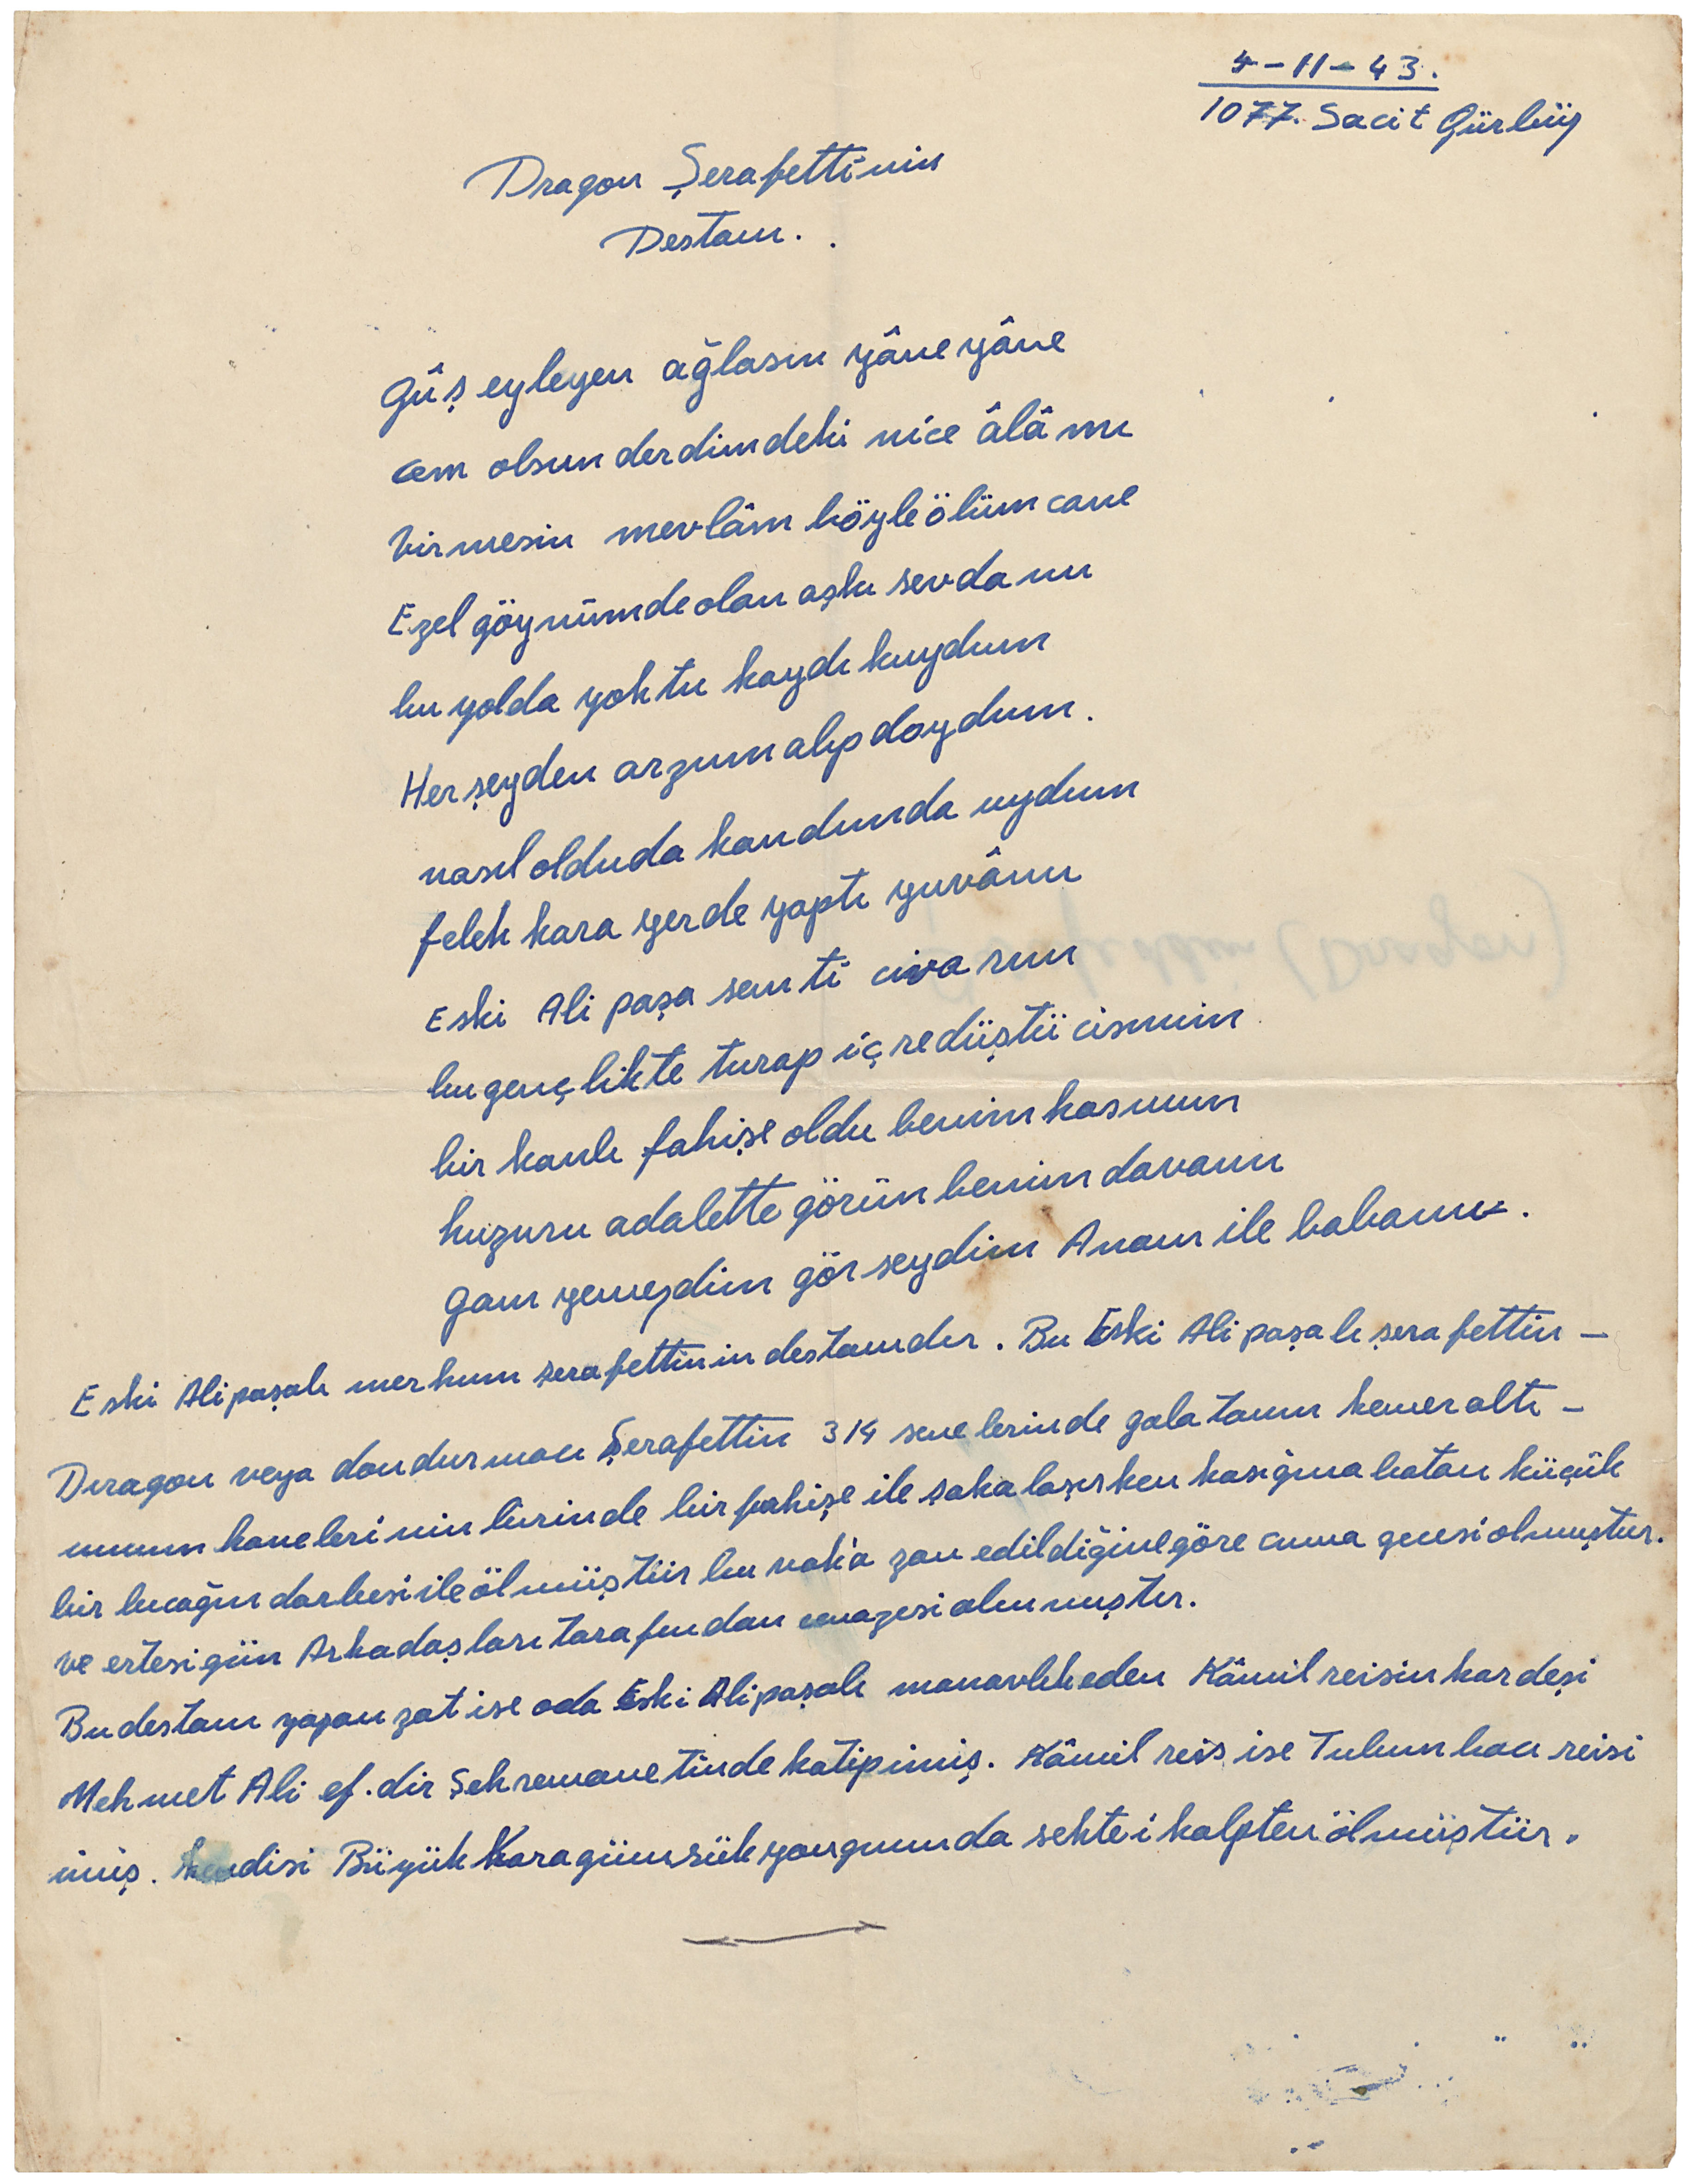 4-11-43.
1077. Sacit Gürbüz
Dragon Şerafettinin
Destanı.
Gûş eyleyen ağlasın yâne yâne
cem olsun derdimdeki nice âlâmı
virmesin mevlâm böyle ölüm cane
Ezel göynümde olan aşkı sevdanın
bu yolda yoktu kaydı kuydum
Her şeyden arzum alıp doydum.
nasıl olduda kandımda uydum
felek kara yerde yaptı yuvânı
Eski Ali paşa semti civarım
bu gençlikte turap içre düştü cismim
bir kanlı fahişe oldu benim hasmım
huzuru adalette görün benim davamı
gam yemezdim görseydim Anam ile babamı.
Eski Alipaşalı merhum serafettinin destanıdır. Bu Eski Ali paşalı şerafettin -
Dıragon veya dondurmacı Şerafettin 314 senelerinde galatanın kemeraltı -
umumhanelerinin birinde bir fahişe ile şakalaşırken kasığına batan küçük
bir bıcağın darbesi ile ölmüştür bu vak'a zan edildiğine göre cuma gecesi olmuştur.
ve ertesi gün Arkadaşları tarafından cenazesi alınmıştır.
Bu destanı yazan zat ise oda Eski Alipaşalı manavlık eden Kâmil reisin kardeşi
Mehmet Ali ef. dir Şehremanetinde katipimiş. Kâmil reis ise Tulumbacı reisi
imiş. kendisi Büyük Karagümrük yangınında sektei kalpten ölmüştür.